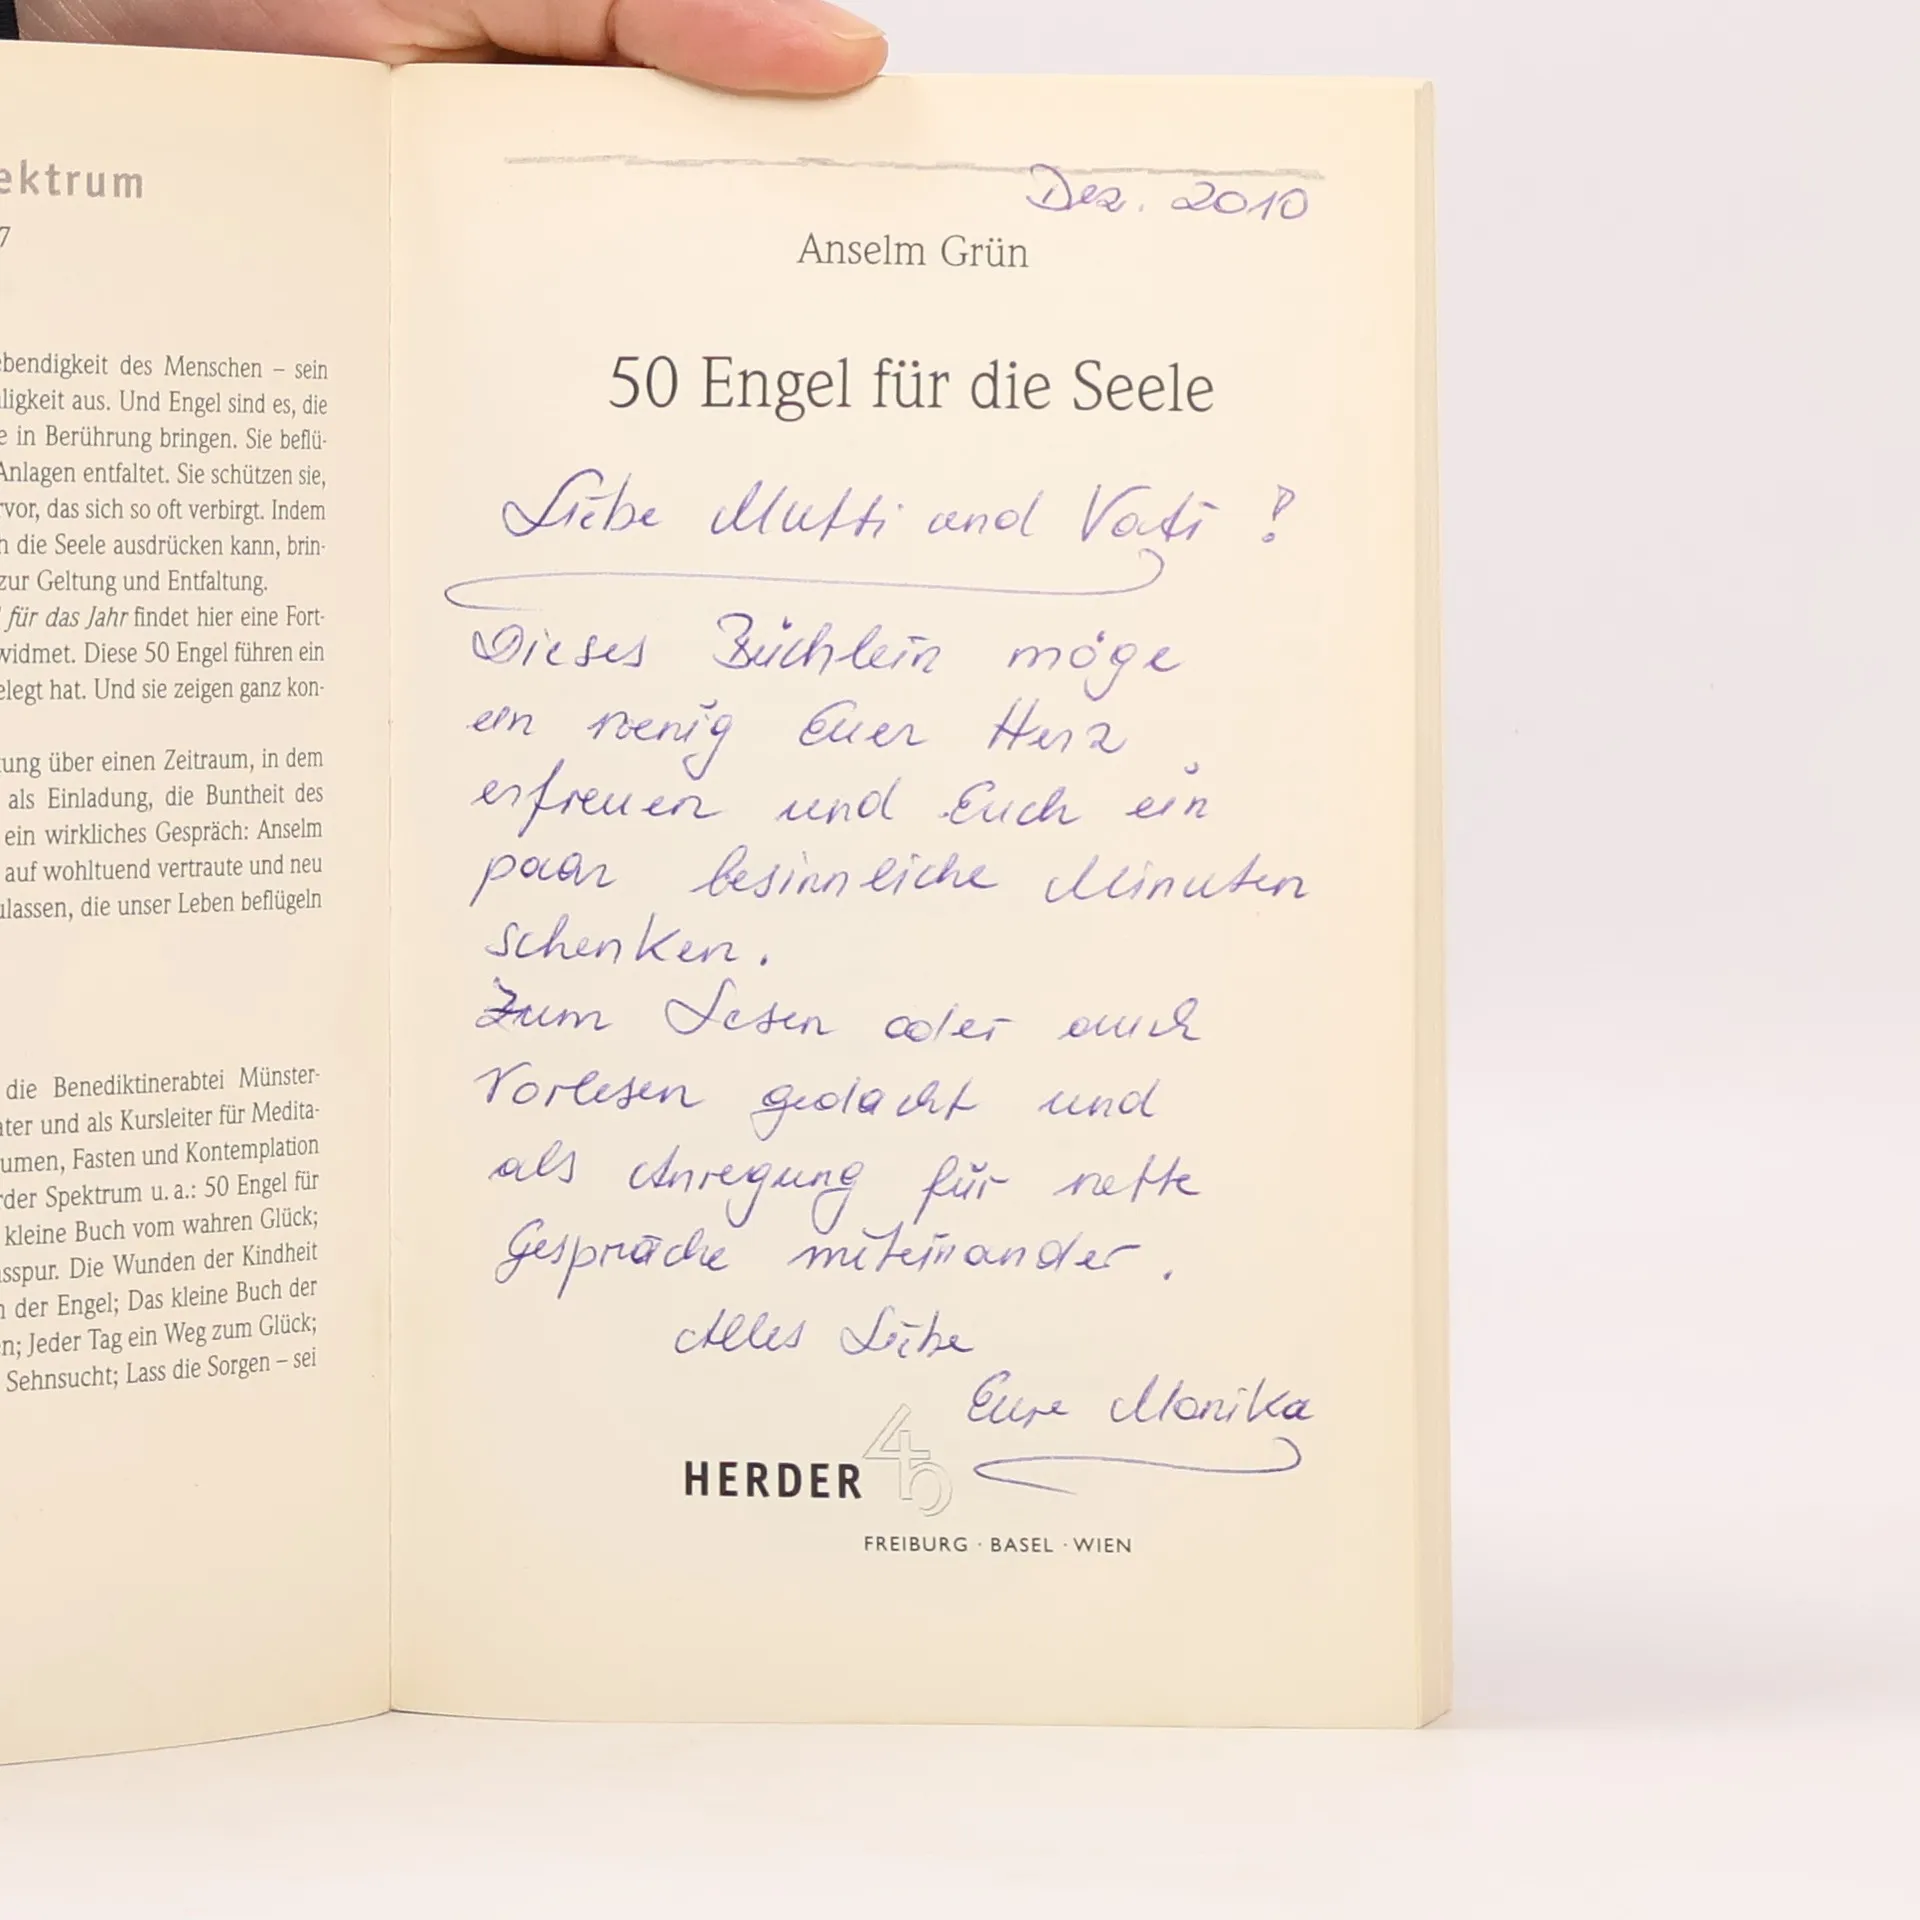 ektrum
7
ebendigkeit des Menschen – sein
ligkeit aus. Und Engel sind es, die
e in Berührung bringen. Sie beflü-
Anlagen entfaltet. Sie schützen sie,
rvor, das sich so oft verbirgt. Indem
h die Seele ausdrücken kann, brin-
zur Geltung und Entfaltung.
für das Jahr findet hier eine Fort-
widmet. Diese 50 Engel führen ein
elegt hat. Und sie zeigen ganz kon-
tung über einen Zeitraum, in dem
als Einladung, die Buntheit des
ein wirkliches Gespräch: Anselm
auf wohltuend vertraute und neu
ulassen, die unser Leben beflügeln
die Benediktinerabtei Münster-
ater und als Kursleiter für Medita-
umen, Fasten und Kontemplation
rder Spektrum u. a.: 50 Engel für
kleine Buch vom wahren Glück;
sspur. Die Wunden der Kindheit
n der Engel; Das kleine Buch der
en; Jeder Tag ein Weg zum Glück;
Sehnsucht; Lass die Sorgen – sei
Dez. 2010
Anselm Grün
50 Engel für die Seele
Liebe Mutti und Vati!
Dieses Büchlein möge
ein wenig Euer Herz
erfreuen und Euch ein
paar besinnliche Minuten
schenken.
Zum Lesen oder auch
Vorlesen gedacht und
als Anregung für nette
Gespräche miteinander.
Alles Liebe
Eure Monika
HERDER
FREIBURG · BASEL · WIEN